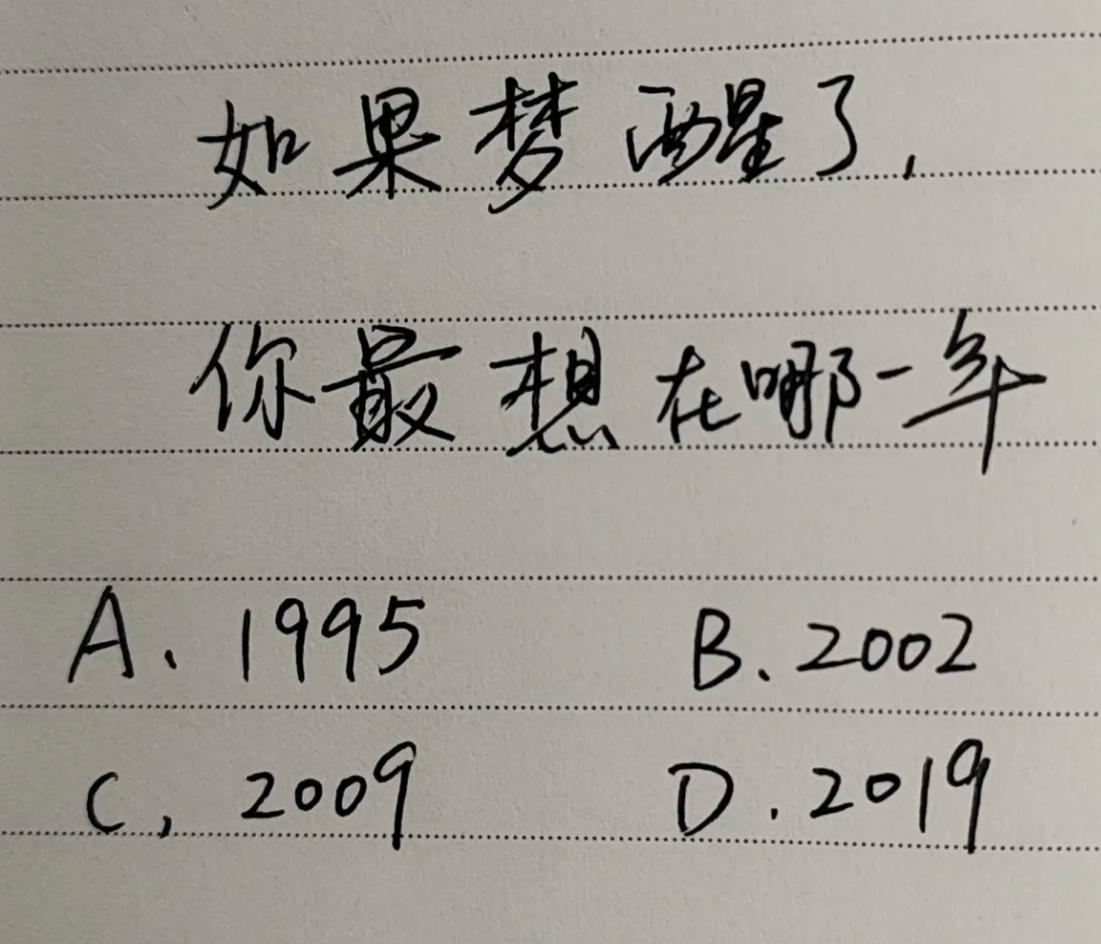 如果梦醒了,
你最想在哪一年
A、1995 B、2002
C, 2009 D.2019